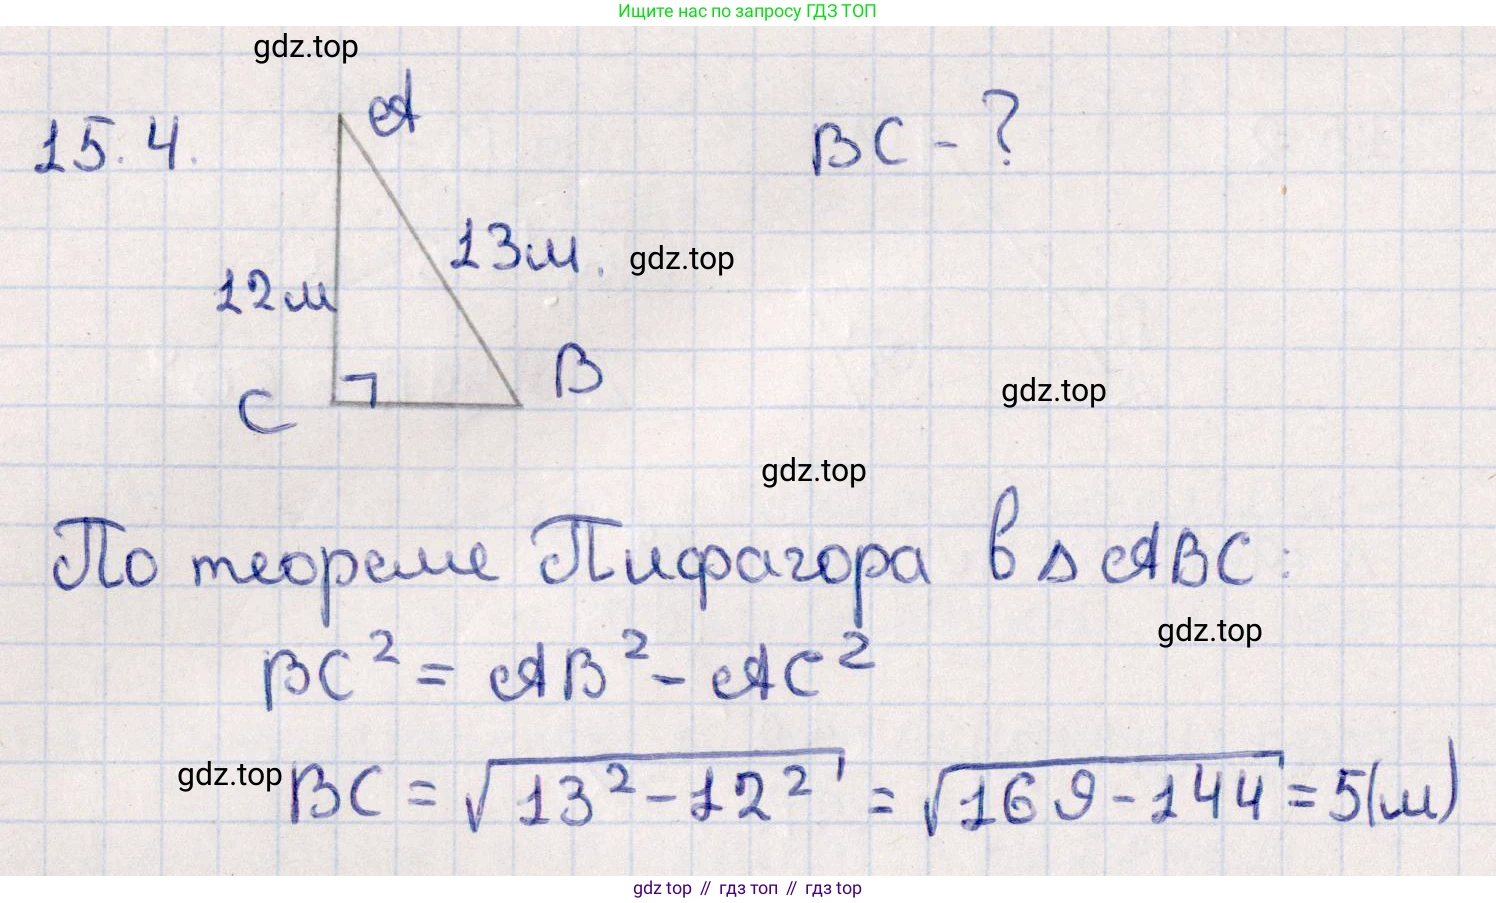 Ищите нас по запросу ГДЗ ТОП
gdz.top
15.4.
A
BC - ?
13м.
gdz.top
12м
B
gdz.top
C
gdz.top
По теореме Пифагора в △ ABC:
gdz.top
BC² = AB² - AC²
gdz.top
BC = √13² - 12² = √169 - 144 = 5(м)
gdz top // гдз топ // гдз top